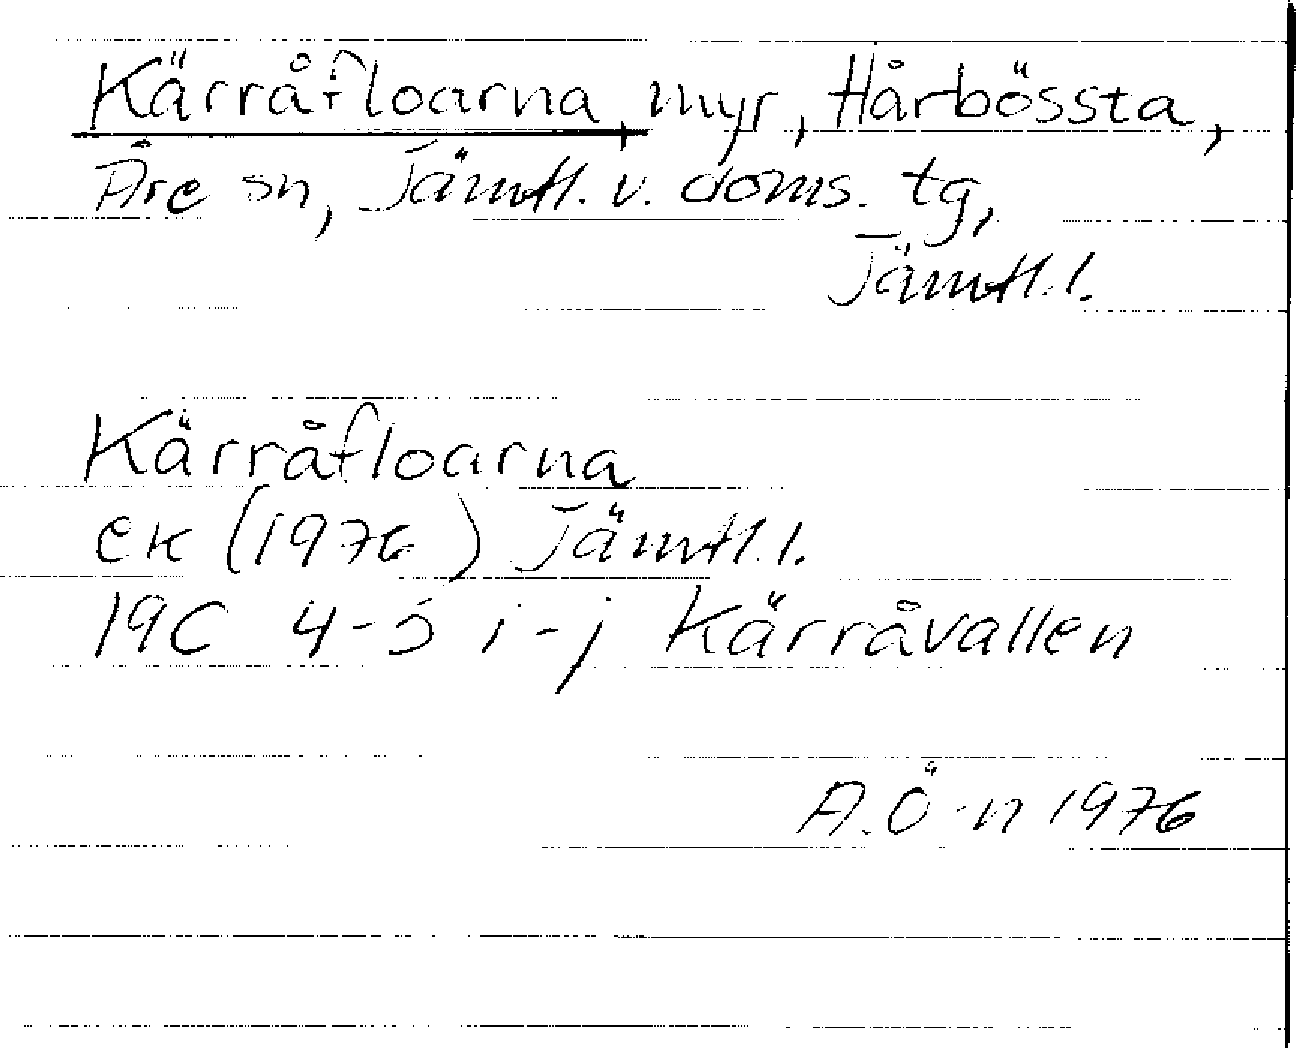 Kärråfloarna, myr, Hårbössta,
Åre sn, Jämtl. v. doms. tg,
Jämtl. l.
Kärråfloarna
ek (1976) Jämtl. l.
19C 4-5 i-j Kärråvallen
A. Ö-n 1976